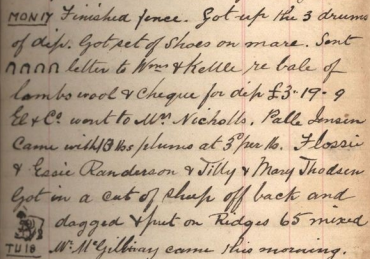 MON 17 Finished fence. Got up the 3 drums
of dip. Got set of Shoes on mare. Sent
letter to Wms & Kettle re bale of
lambs wool & Cheque for dip £3-19-9
El & Co went to Mrs Nicholls. Palle Jensen
Came with 13 lbs plums at 3d per lb. Flossie
& Essie Randerson & Tilly & Mary Thodsen
Got in a cut of sheep off back and
dagged & put on Ridges 65 mixed
TU 18 Mr McGilvray came this morning.